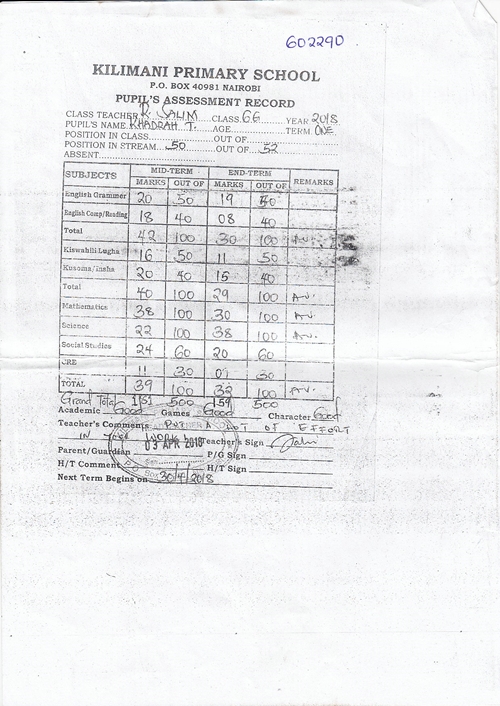 602290
KILIMANI PRIMARY SCHOOL
P.O. BOX 40981 NAIROBI
PUPIL'S ASSESSMENT RECORD
CLASS TEACHER R. SALIM CLASS 6G YEAR 2018
PUPIL'S NAME KHADRAH T. AGE TERM ONE
POSITION IN CLASS OUT OF
POSITION IN STREAM 50 OUT OF 52
ABSENT
SUBJECTS MID-TERM END-TERM REMARKS
MARKS OUT OF MARKS OUT OF
English Grammer 20 50 19
English Comp/Reading 18 40 08 40
Total 42 100 30 100 Av.
Kiswahili Lugha 16 50 11 50
Kusoma/Insha 20 40 15 40
Total 40 100 29 100 Av.
Mathematics 38 100 30 100 Av.
Science 22 100 38 100 Av.
Social Studies 24 60 20 60
CRE 11 30 30
TOTAL 39 100 32 100 Av.
Grand Total 181 500 159 500
Academic Good Games Good Character Good
Teacher's Comments PUT A LOT OF EFFORT
IN WORK Teacher's Sign
03 APR 2018
Parent/Guardian P/G Sign
H/T Comment H/T Sign
Next Term Begins on 30/4/2018